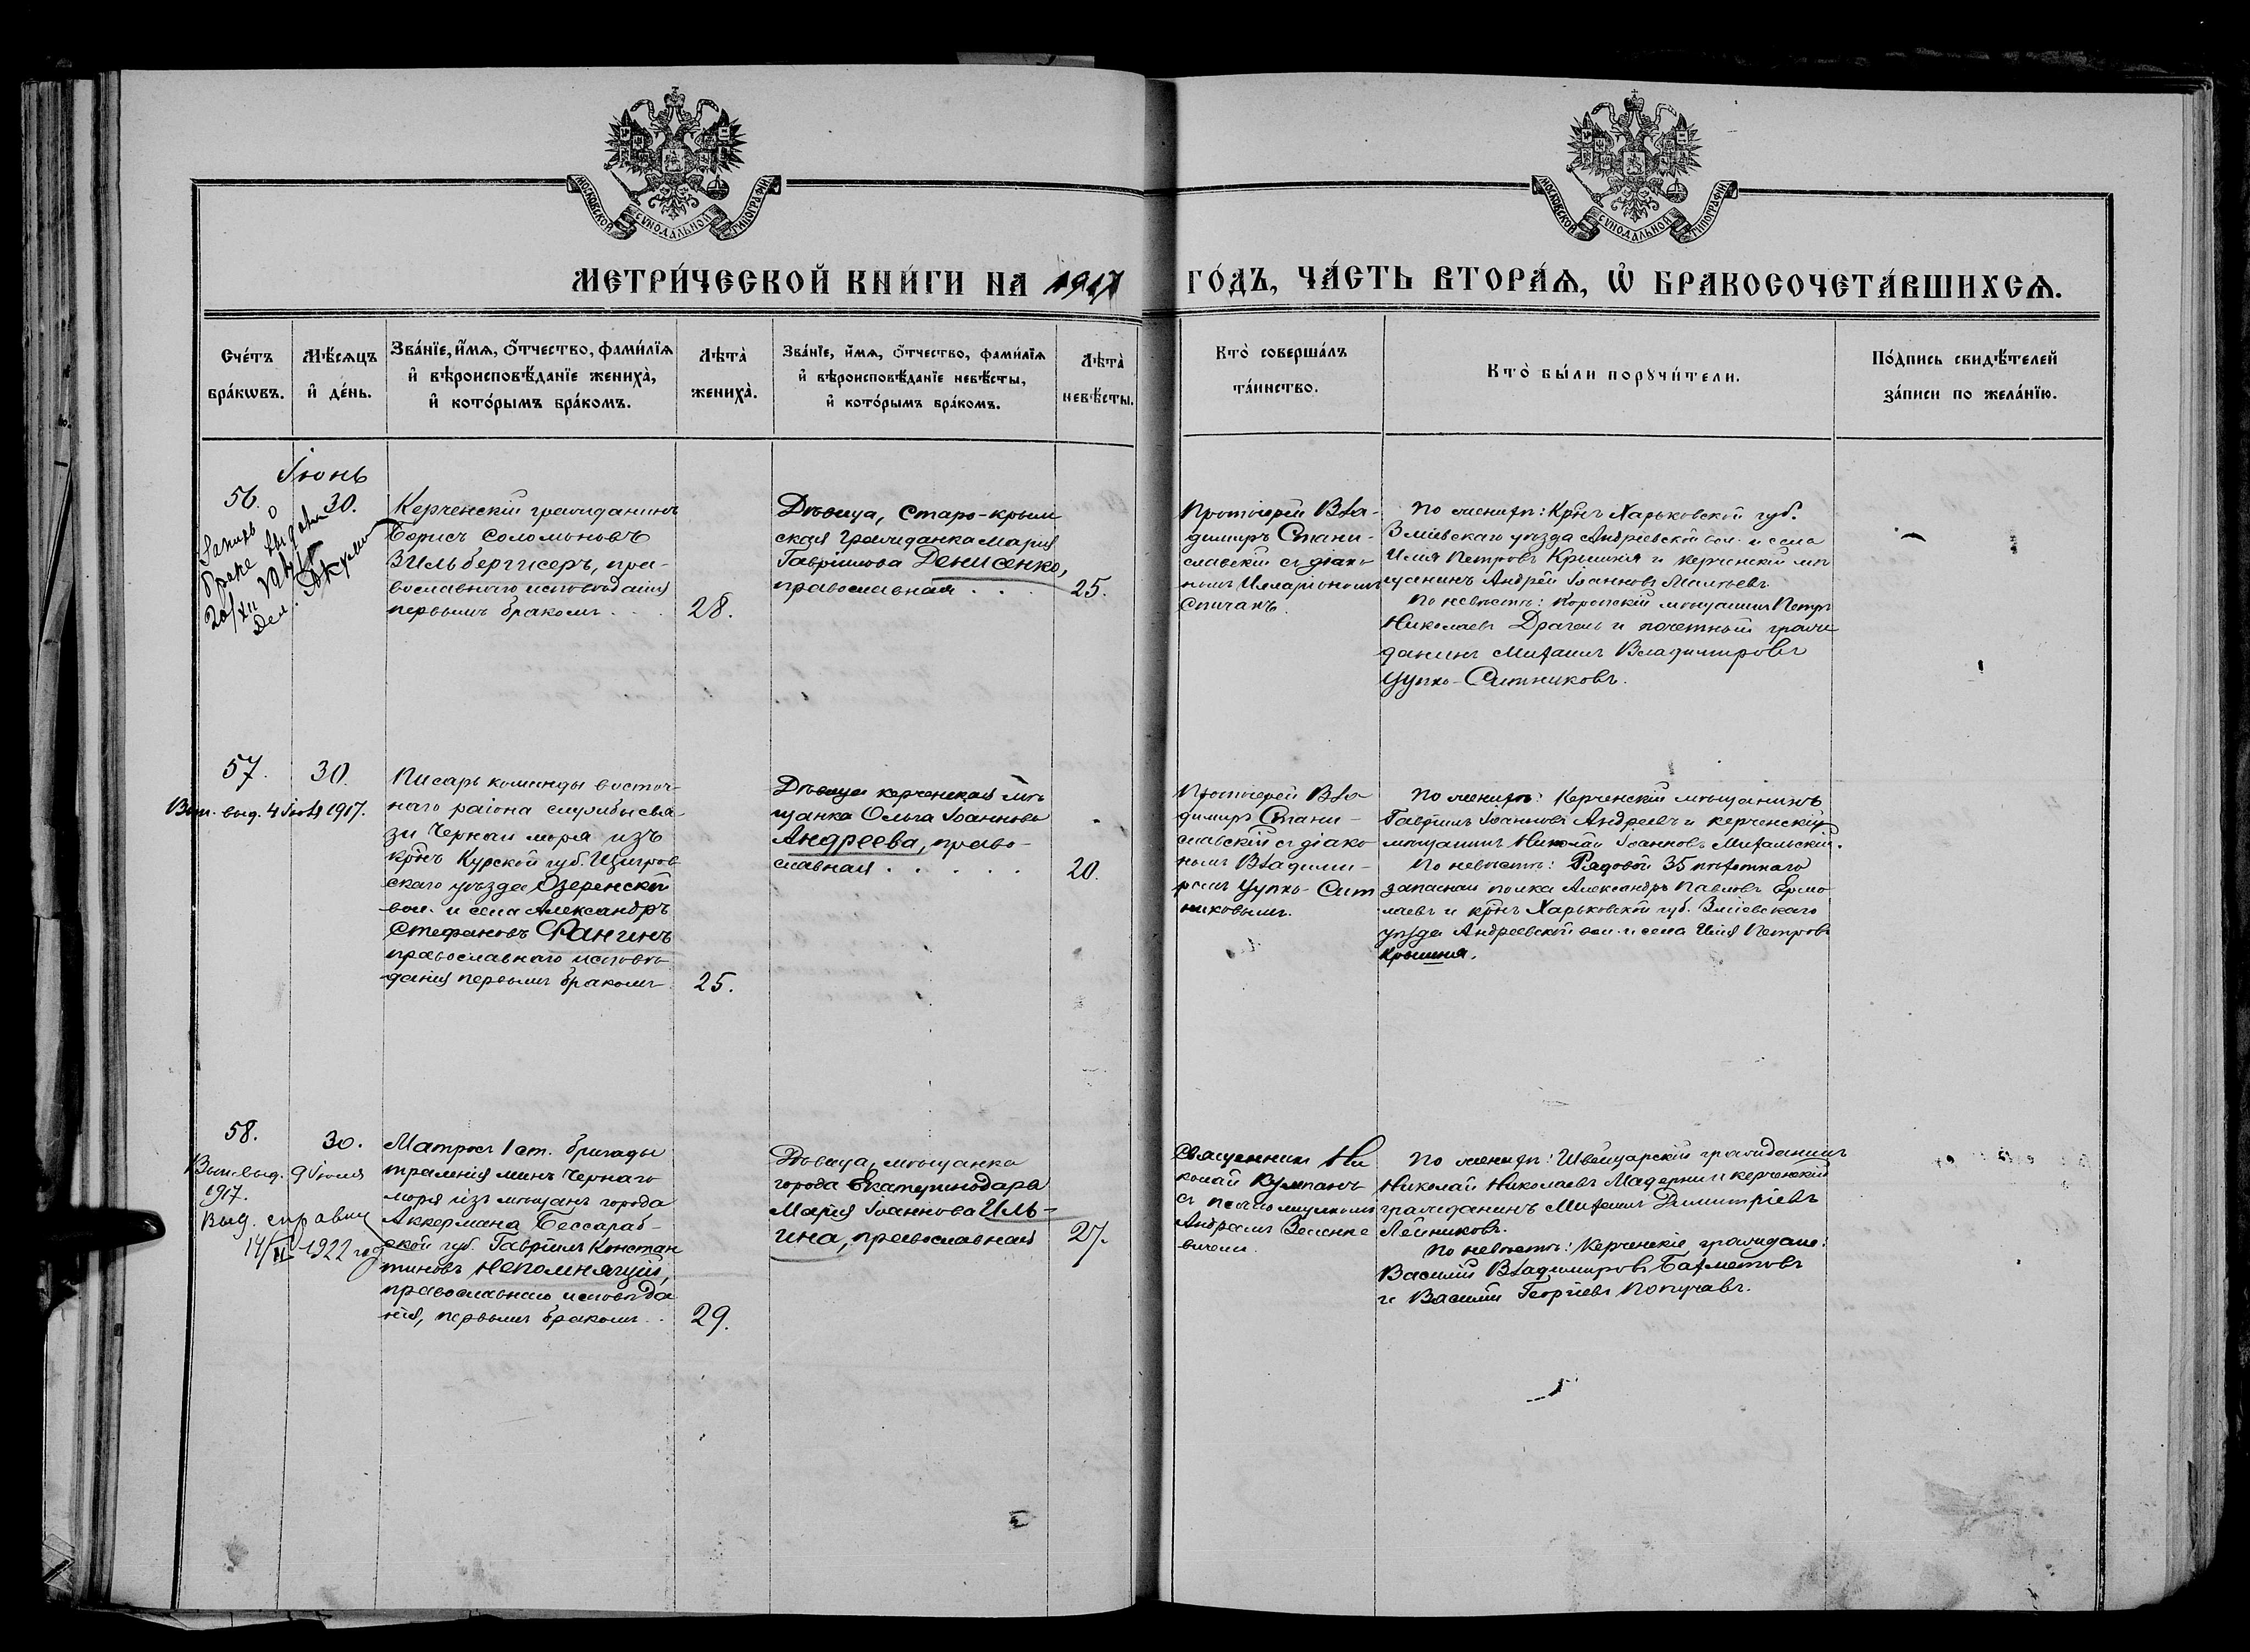 МОСКОВСКОЙ СѴНОДАЛЬНОЙ ТИПОГРАФІИ
МОСКОВСКОЙ СѴНОДАЛЬНОЙ ТИПОГРАФІИ
МЕТРИ́ЧЕСКОЙ КНИ́ГИ НА 1917 ГО́ДЪ, ЧА́СТЬ ВТОРА́Ѧ, Ѡ҆ БРАКОСОЧЕТА́ВШИХСѦ.
Сче́тъ
бра́кѡвъ.
Мѣ́сяцъ
и҆ де́нь.
Зва́нїе, и҆́мѧ, ѻ҆́тчество, фами́лїѧ
и҆ вѣроисповѣ́данїе жениха̀,
и҆ кото́рымъ бра́комъ.
Лѣта̀
жениха̀.
Зва́нїе, и҆́мѧ, ѻ҆́тчество, фами́лїѧ
и҆ вѣроисповѣ́данїе невѣ́сты,
и҆ кото́рымъ бра́комъ.
Лѣта̀
невѣ́сты.
Кто̀ соверша́лъ
та́инство.
Кто̀ бы́ли порꙋчи́тели.
По́дпись свидѣ́телей
за́писи по жела́нїю.
Іюнь
56.
30.
Запись о
браке выдана
20/XII
Дел.
Керченскій гражданинъ
Борисъ Соломоновъ
Зильбергисеръ, пра-
вославнаго исповѣданія
первымъ бракомъ . .
28.
Дѣвица, Старо-крым
ская гражданка Марія
Гавріилова Денисенко,
православная . . .
25.
Протоіерей Вла-
димиръ Стани-
славскій съ діако-
номъ Иларіономъ
Спичакъ.
По женихѣ: Крнъ Харьковской губ.
Зміевскаго уѣзда Андреевской вол. и села
Илія Петровъ Крышня и керченскій мѣ
щанинъ Андрей Іоанновъ Малѣевъ.
По невѣстѣ: Коропскій мѣщанинъ Петръ
Николаевъ Драгель и почетный граж
данинъ Михаилъ Владимировъ
Цупко-Ситниковъ.
57.
30.
Вып. выд. 4 Іюля 1917.
Писарь команды восточ-
наго раіона службы свя-
зи Чернаго моря изъ
крнъ Курской губ. Щигров
скаго уѣзда Озеренской
вол. и села Александръ
Стефановъ Фангинъ
православнаго исповѣ-
данія первымъ бракомъ
25.
Дѣвица керченская мѣ
щанка Ольга Іоаннова
Андреева, право-
славная . . . . .
20.
Протоіерей Вла-
димиръ Стани-
славскій съ діако
номъ Владими-
ромъ Цупко-Сит
никовымъ.
По женихѣ: Керченскій мѣщанинъ
Гавріилъ Іоанновъ Андреевъ и керченскій
мѣщанинъ Николай Іоанновъ Михальскій.
По невѣстѣ: Рядовой 35 пѣхотнаго
запаснаго полка Александръ Павловъ Ермо
лаевъ и крнъ Харьковской губ. Зміевскаго
уѣзда Андреевской вол. и села Илія Петровъ
Крышня.
58.
30.
Вып. выд. 9 Іюля
1917.
Выд. справку
14/II 1922 год
Матросъ 1 ст. бригады
траленія минъ Чернаго
моря изъ мѣщанъ города
Аккермана Бессараб-
ской губ. Гавріилъ Констан
тиновъ Непомнящій,
православнаго исповѣда
нія, первымъ бракомъ . .
29.
Дѣвица, мѣщанка
города Екатеринодара
Марія Іоаннова Иль-
ина, православная
27.
Священникъ Ни
колай Кумпанъ
съ псаломщикомъ
По женихѣ: Швейцарскій гражданинъ
Николай Николаевъ Мадерни и керченскій
гражданинъ Михаилъ Димитріевъ
Лейниковъ.
По невѣстѣ: Керченскіе граждане:
Василій Владимировъ Бахметовъ
и Василій Георгіевъ Попучавъ.